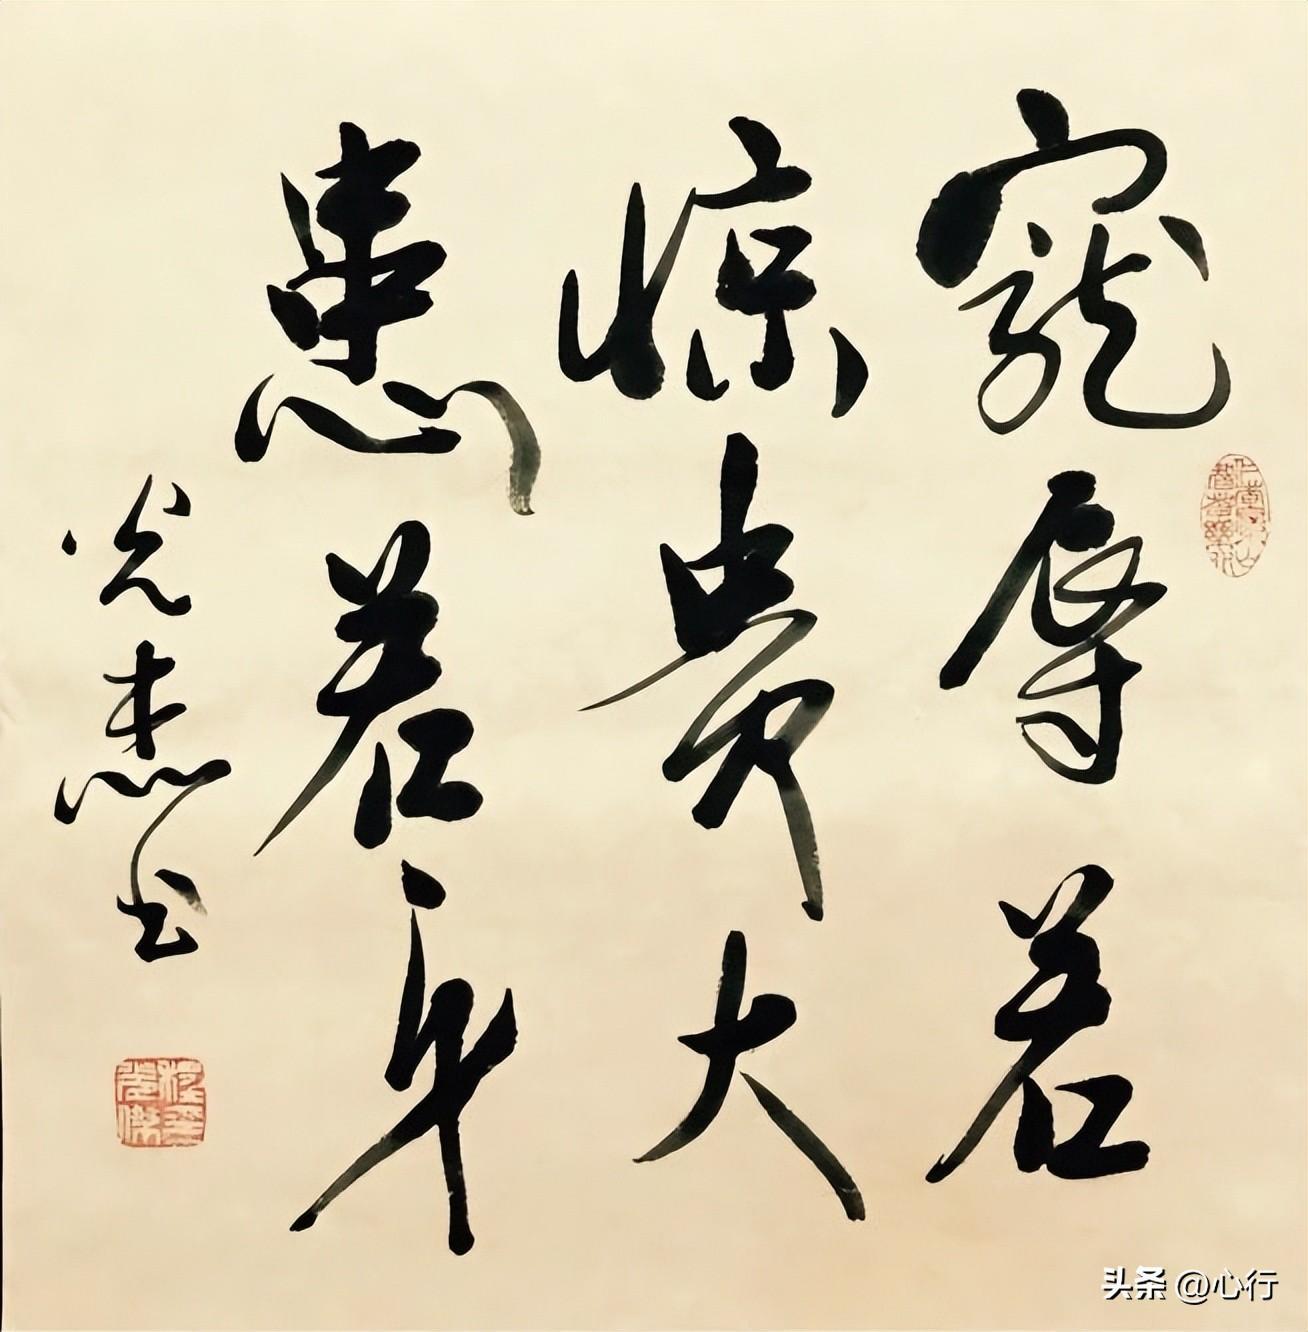 寵辱若
惊贵大
患若身
光杰书
头条 @心行